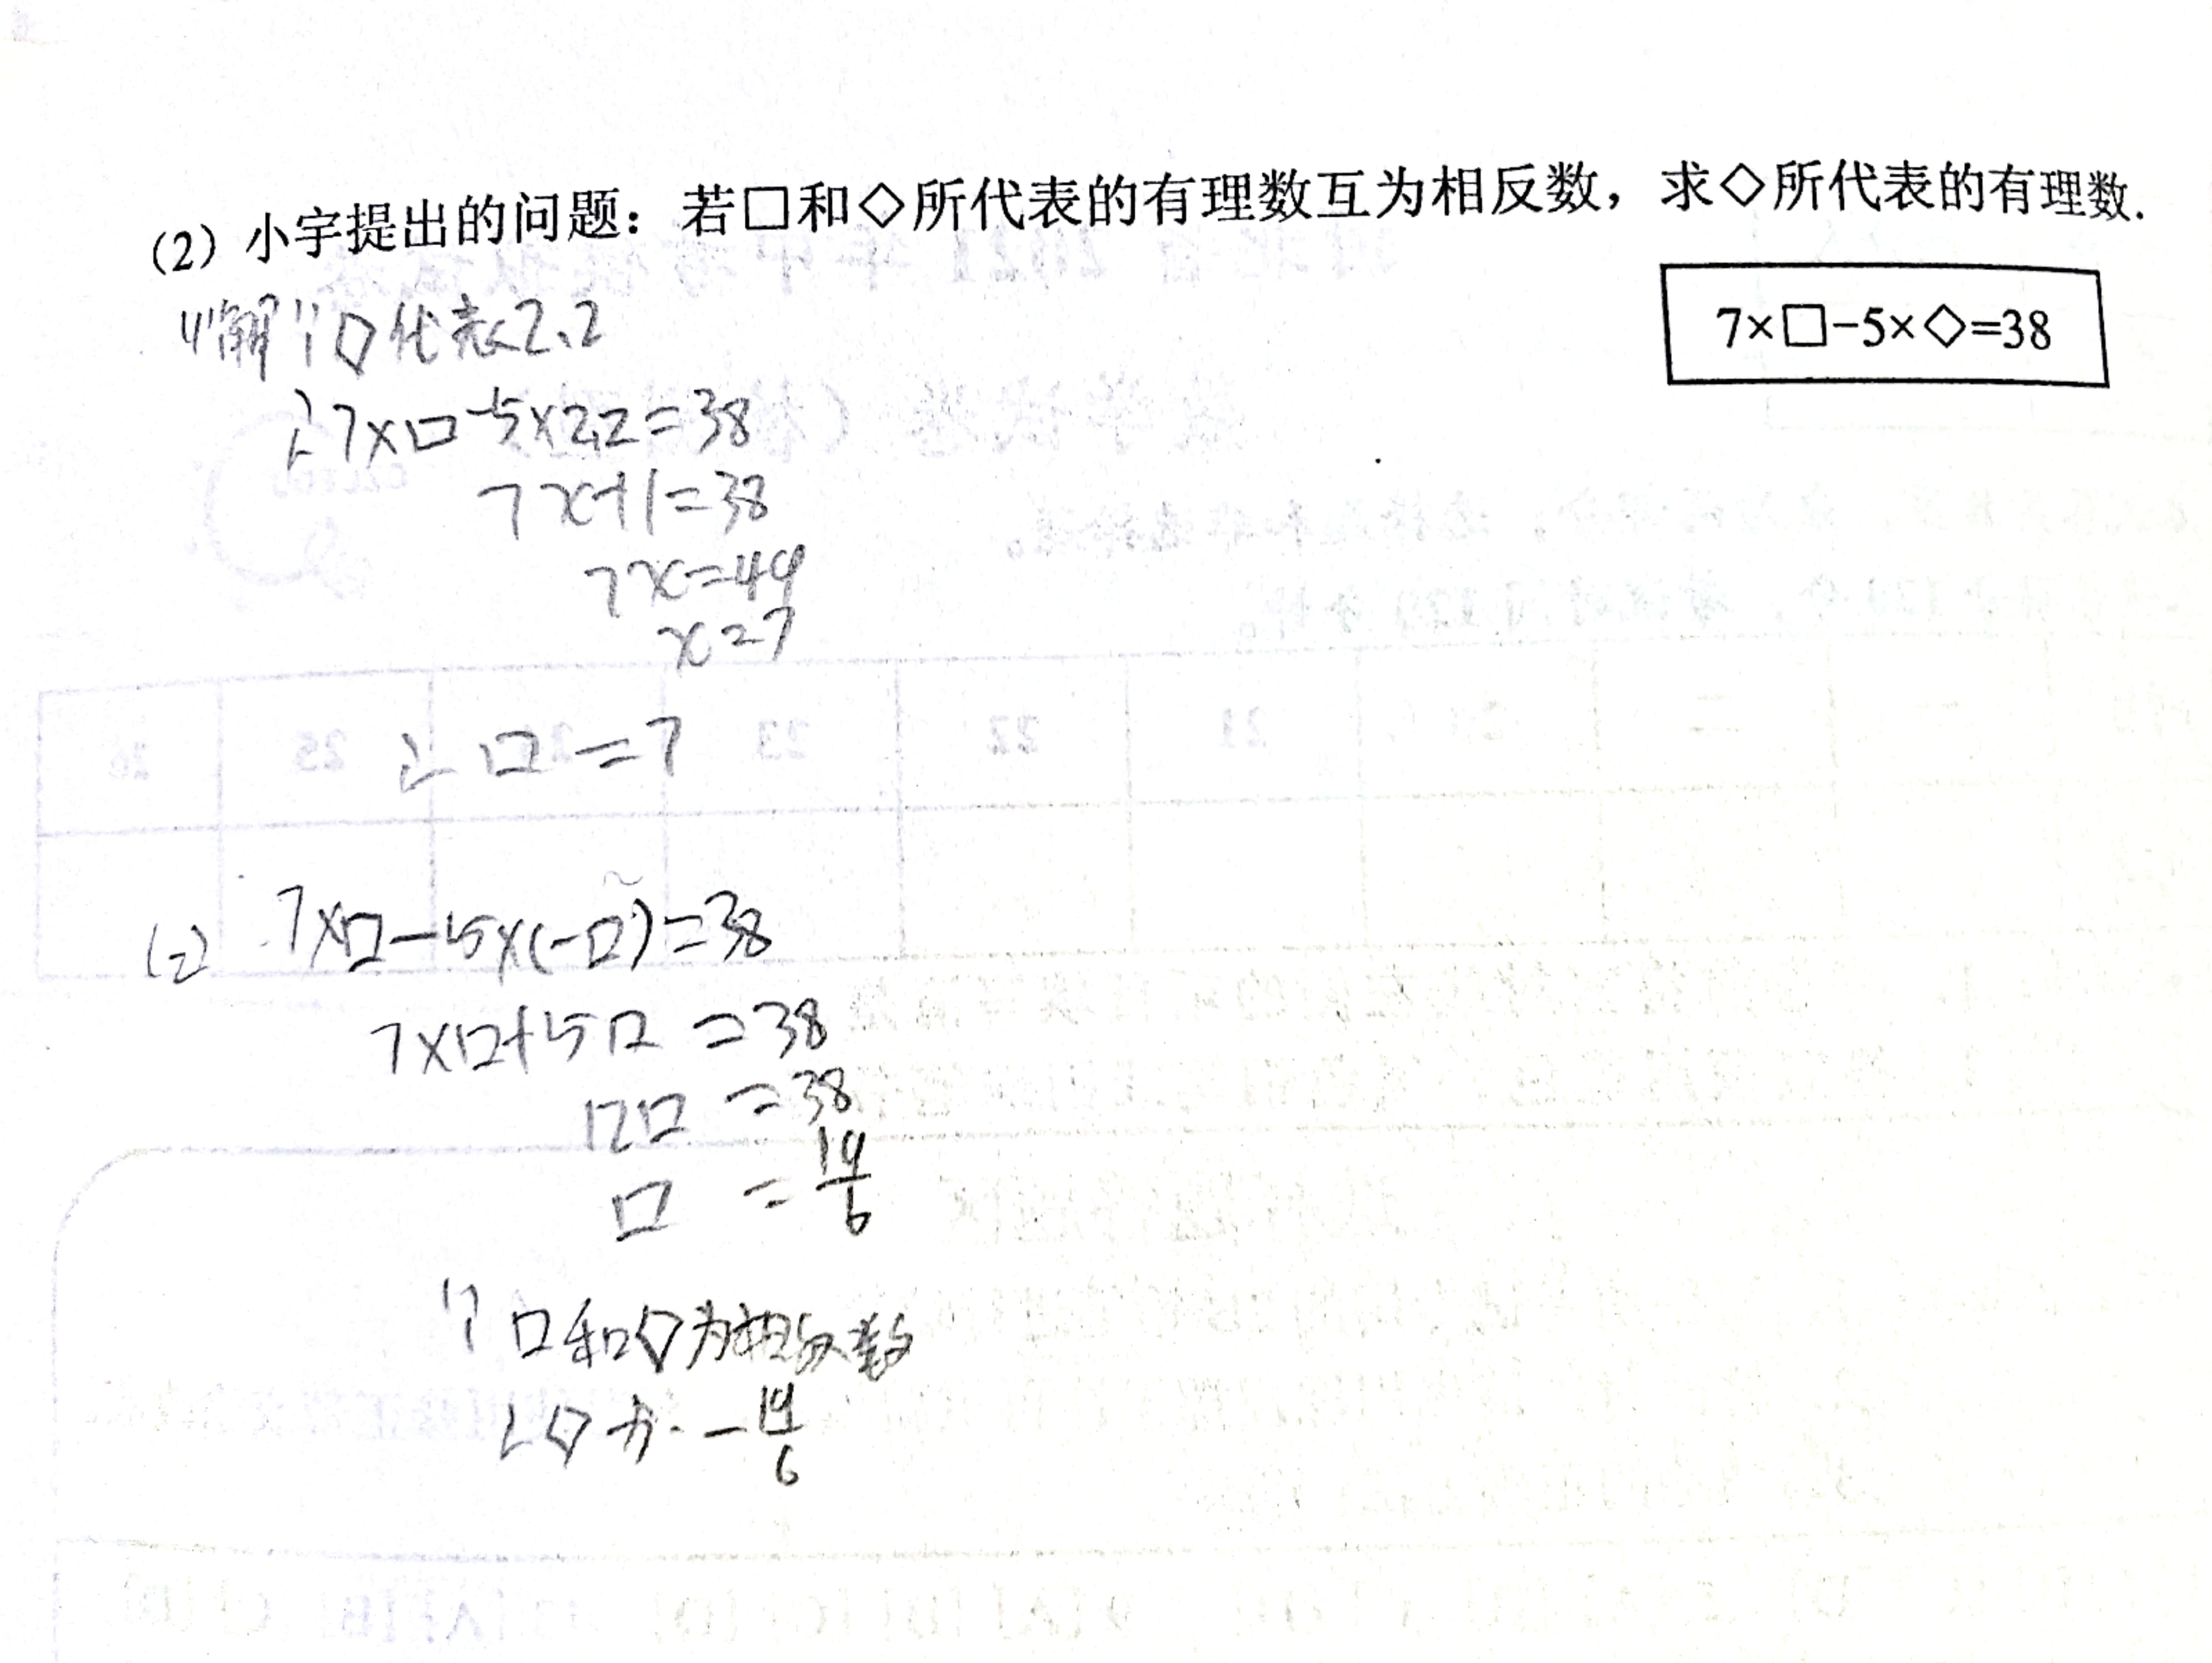 (2) 小宇提出的问题：若□和◇所代表的有理数互为相反数，求◇所代表的有理数.
7×□-5×◇=38
(1)解 ∵◇代表2.2
∴7×□-5×2.2=38
7x-11=38
7x=49
x=7
∴ □=7
(2) 7×□-5×(-□)=38
7×□+5□=38
12□=38
□=19/6
∵□和◇为相反数
∴◇为-19/6